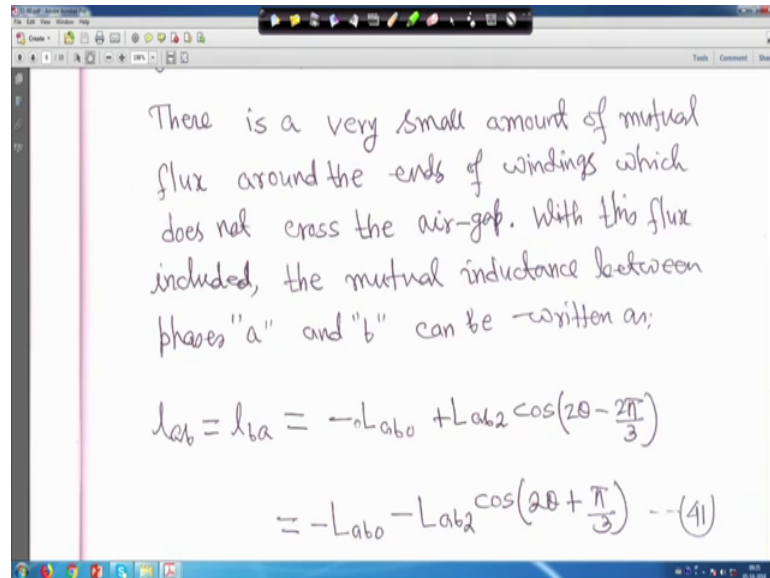 File Edit View Window Help
Create
Tools Comment
There is a very small amount of mutual
flux around the ends of windings which
does not cross the air-gap. With this flux
included, the mutual inductance between
phases "a" and "b" can be written as;
l_ab = l_ba = -L_ab0 + L_ab2 cos(2θ - 2π/3)
= -L_ab0 - L_ab2 cos(2θ + π/3) --(41)